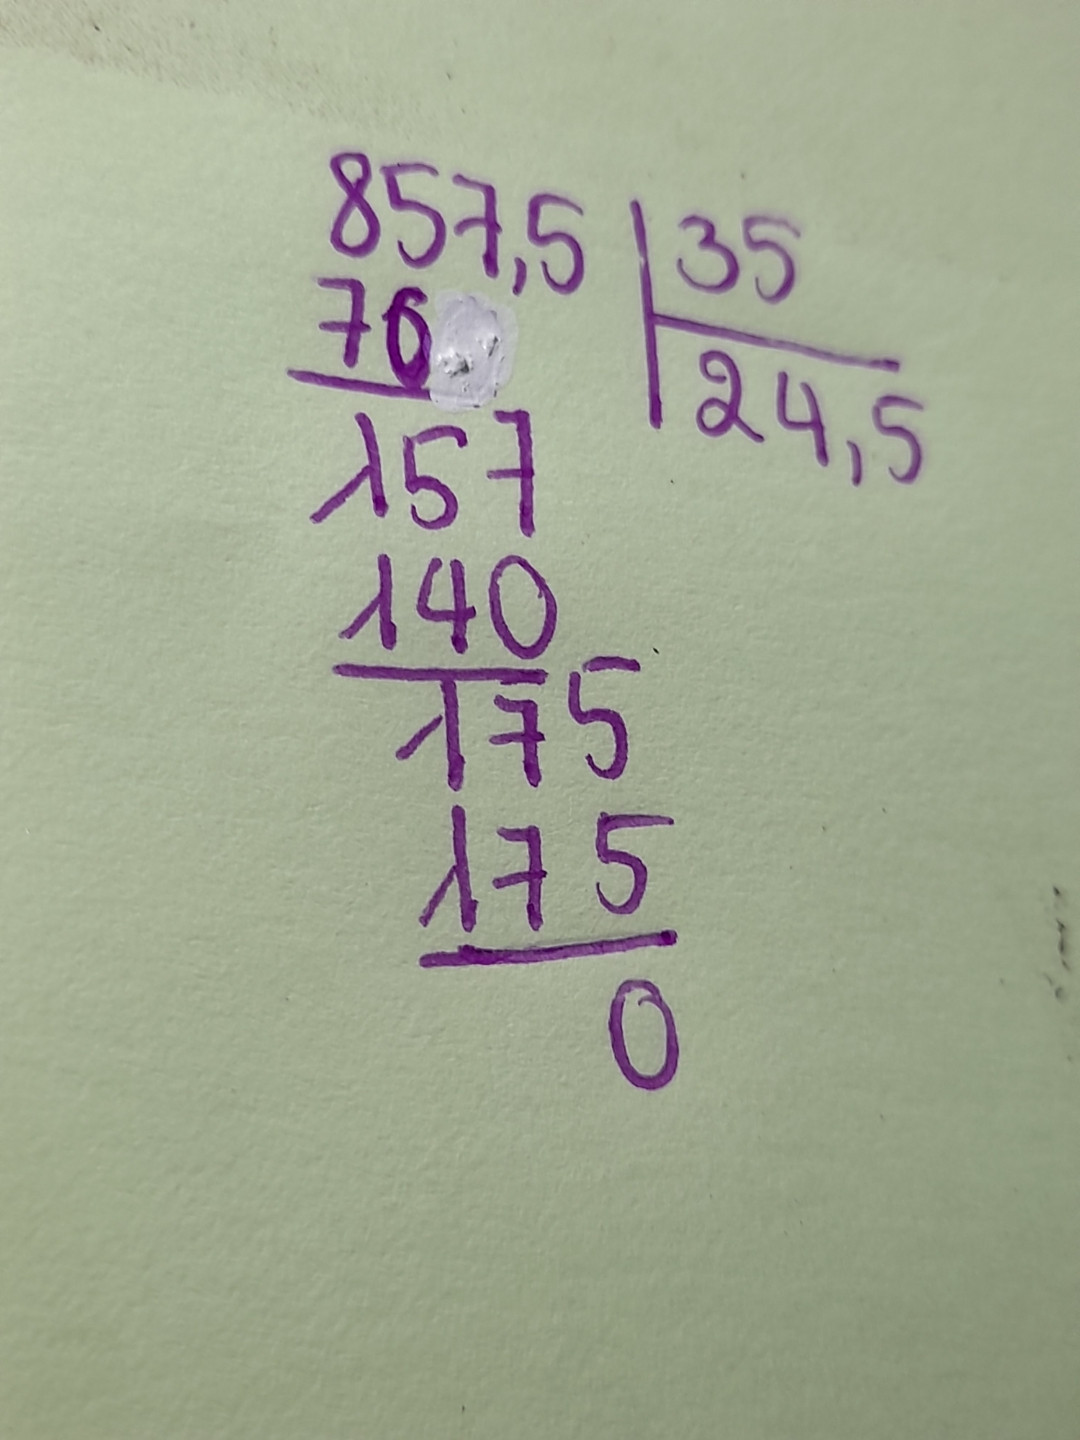 857,5 | 35
70 24,5
157
140
175
175
0